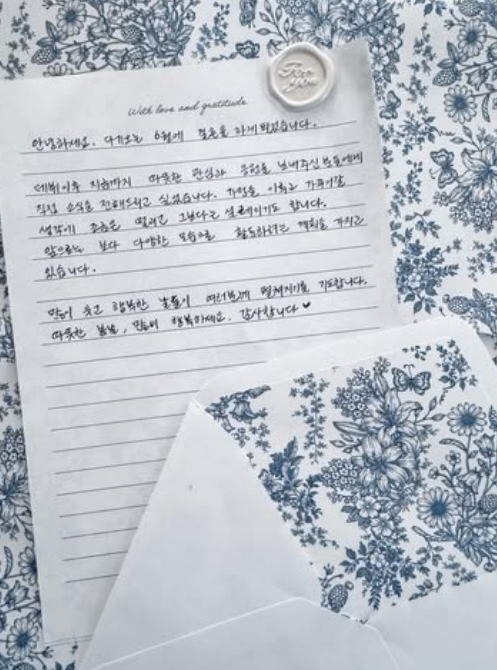 For
you
With love and gratitude
안녕하세요. 다가오는 6월에 결혼을 하게 되었습니다.
데뷔 이후 지금까지 따뜻한 관심과 응원을 보내주신 분들에게
직접 소식을 전해드리고 싶었습니다. 가정을 이루고 가꾸어갈
생각에 조금은 떨리고 그보다 더 설레이기도 합니다.
앞으로는 보다 다양한 모습으로 활동하려고 계획을 가지고
있습니다.
많이 웃고 행복한 날들이 여러분께 펼쳐지기를 기도합니다.
따뜻한 봄날, 많이 행복하세요. 감사합니다 ♥